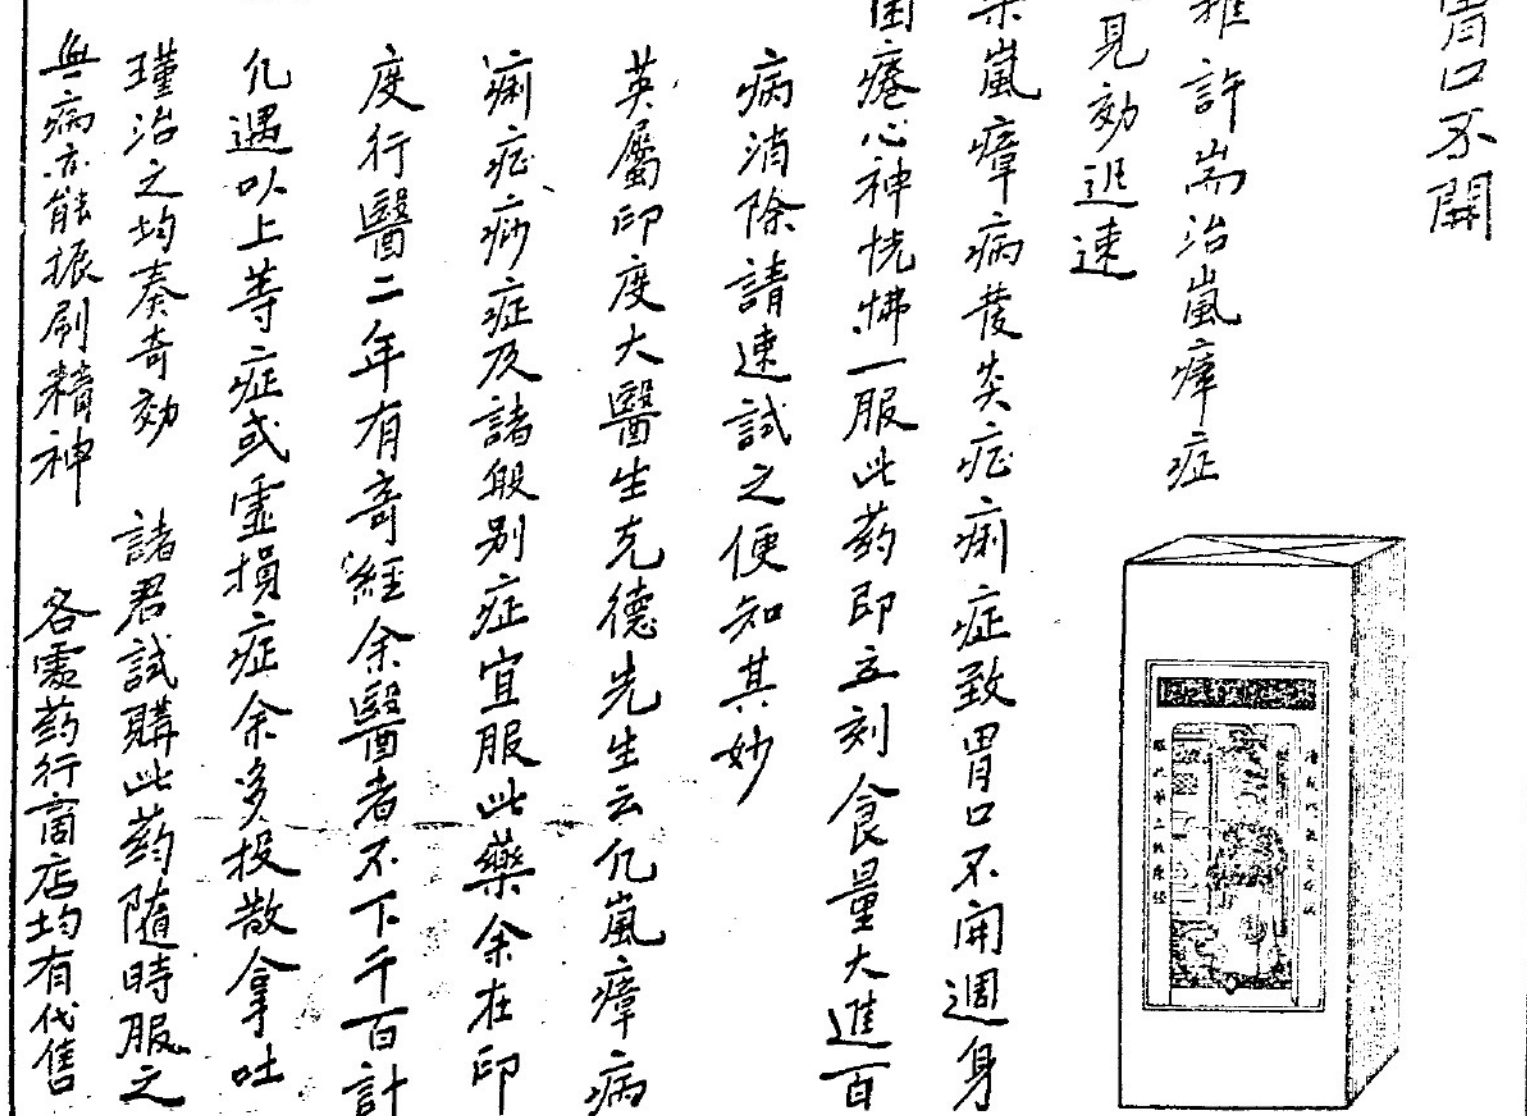 胃口不開
許耑治嵐瘴症
見効迅速
染嵐瘴病發炎症痢症致胃口不開週身
困癢心神恍怫一服此药即立刻食量大進百
病消除請速試之便知其妙
英屬印度大醫生克德先生云凢嵐瘴病
痢症痧症及諸般别症宜服此藥余在印
度行醫二年有奇經余醫者不下千百計
凢遇以上等症或虛損症余多投散拿吐
瑾治之均奏奇効 諸君試購此药隨時服之
無病亦能振刷精神 各處药行商店均有代售